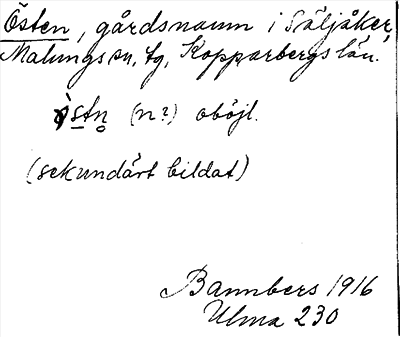 Östen, gårdsnamn i Säljåker,
Malungs sn, fg, Kopparbergs län.
(n?) oböjl.
(sekundärt bildat)
Bannbers 1916
Ulma 230